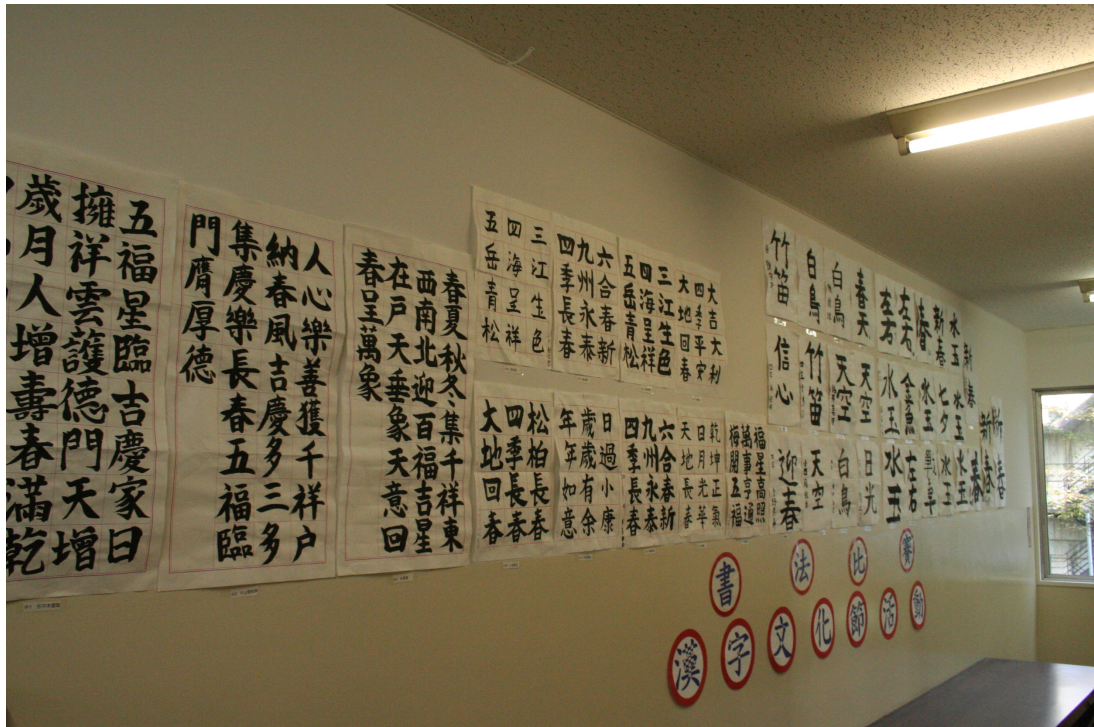 五福星臨吉慶家日
擁祥雲護德門天增
歲月人增壽春滿乾
人心樂善獲千祥户
納春風吉慶多三多
集慶樂長春五福臨
門膺厚德
春夏秋冬集千祥東
西南北迎百福吉星
在戸天垂象天意回
春呈萬象
三江生色
四海呈祥
五岳青松
六合春新
九州永泰
四季長春
三江生色
四海呈祥
五岳青松
大吉大利
四季平安
大地回春
松柏長春
四季長春
大地回春
日過小康
歲歲有余
年年如意
六合春新
九州永泰
四季長春
乾坤正氣
日月光華
天地長春
福星高照
萬事亨通
梅開五福
竹笛
白鳥
白鳥
春天
左右
左右
春
新春
水玉
新春
信心
竹笛
天空
天空
水玉
水玉
七夕
水玉
新春
新春
迎春
天空
白鳥
日光
水玉
左右
水玉
水玉
春
春
書法比賽
漢字文化節活動